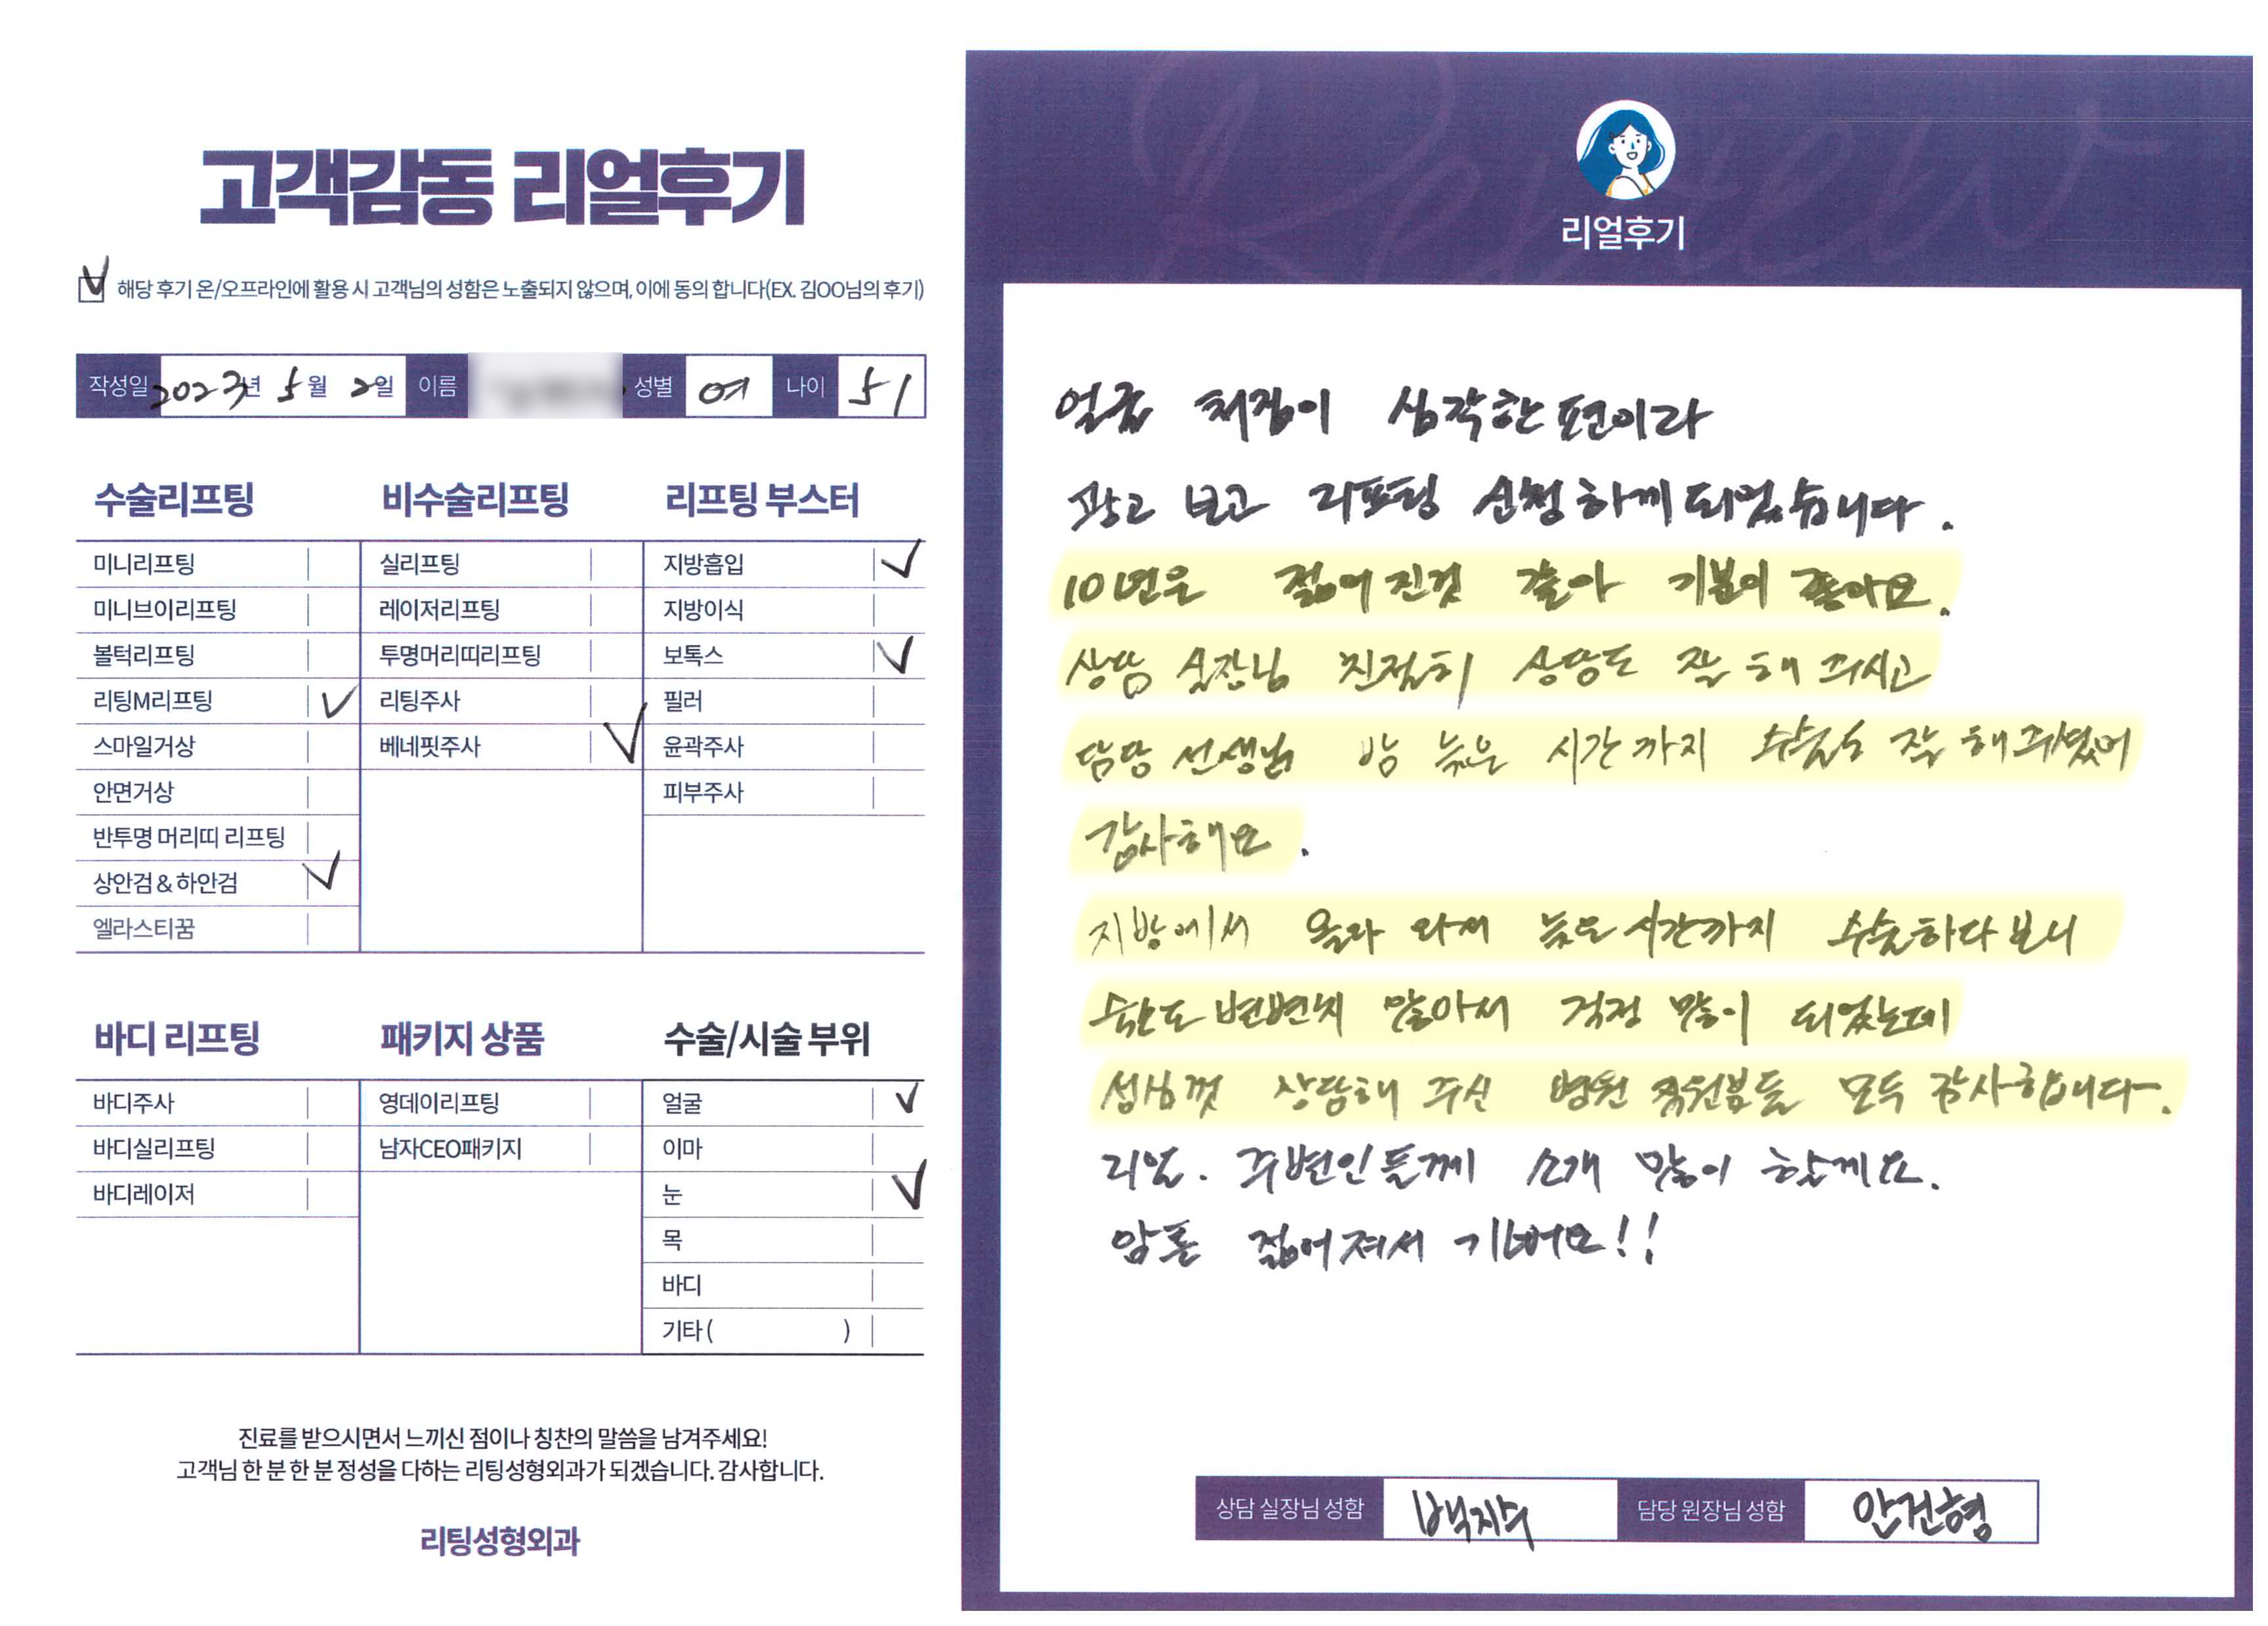 고객감동 리얼후기
해당 후기 온/오프라인에 활용 시 고객님의 성함은 노출되지 않으며, 이에 동의 합니다(EX. 김OO님의 후기)
작성일 2023년 5월 2일 이름 성별 여 나이 51
수술리프팅
미니리프팅
미니브이리프팅
볼턱리프팅
리팅M리프팅
스마일거상
안면거상
반투명 머리띠 리프팅
상안검 & 하안검
엘라스티꿈
비수술리프팅
실리프팅
레이저리프팅
투명머리띠리프팅
리팅주사
베네핏주사
리프팅 부스터
지방흡입
지방이식
보톡스
필러
윤곽주사
피부주사
바디 리프팅
바디주사
바디실리프팅
바디레이저
패키지 상품
영데이리프팅
남자CEO패키지
수술/시술 부위
얼굴
이마
눈
목
바디
기타 ( )
진료를 받으시면서 느끼신 점이나 칭찬의 말씀을 남겨주세요!
고객님 한 분 한 분 정성을 다하는 리팅성형외과가 되겠습니다. 감사합니다.
리팅성형외과
Review
리얼후기
얼굴 처짐이 심각한 편이라
광고 보고 리프팅 신청하께 되었습니다.
10년은 젊어진것 같아 기분이 좋아요.
상담 실장님 친절히 상담도 잘 해 주시고
담당 선생님 밤 늦은 시간까지 수술도 잘 해주셨어
감사해요.
지방에서 올라 와서 늦은 시간까지 수술하다보니
숙소도 변변치 않아서 걱정 많이 되었는데
성심껏 상담해 주신 병원 직원분들 모두 감사합니다.
리얼. 주변인들께 소개 많이 할께요.
암튼 젊어져서 기뻐요!!
상담 실장님 성함 백지수 담당 원장님 성함 안건형